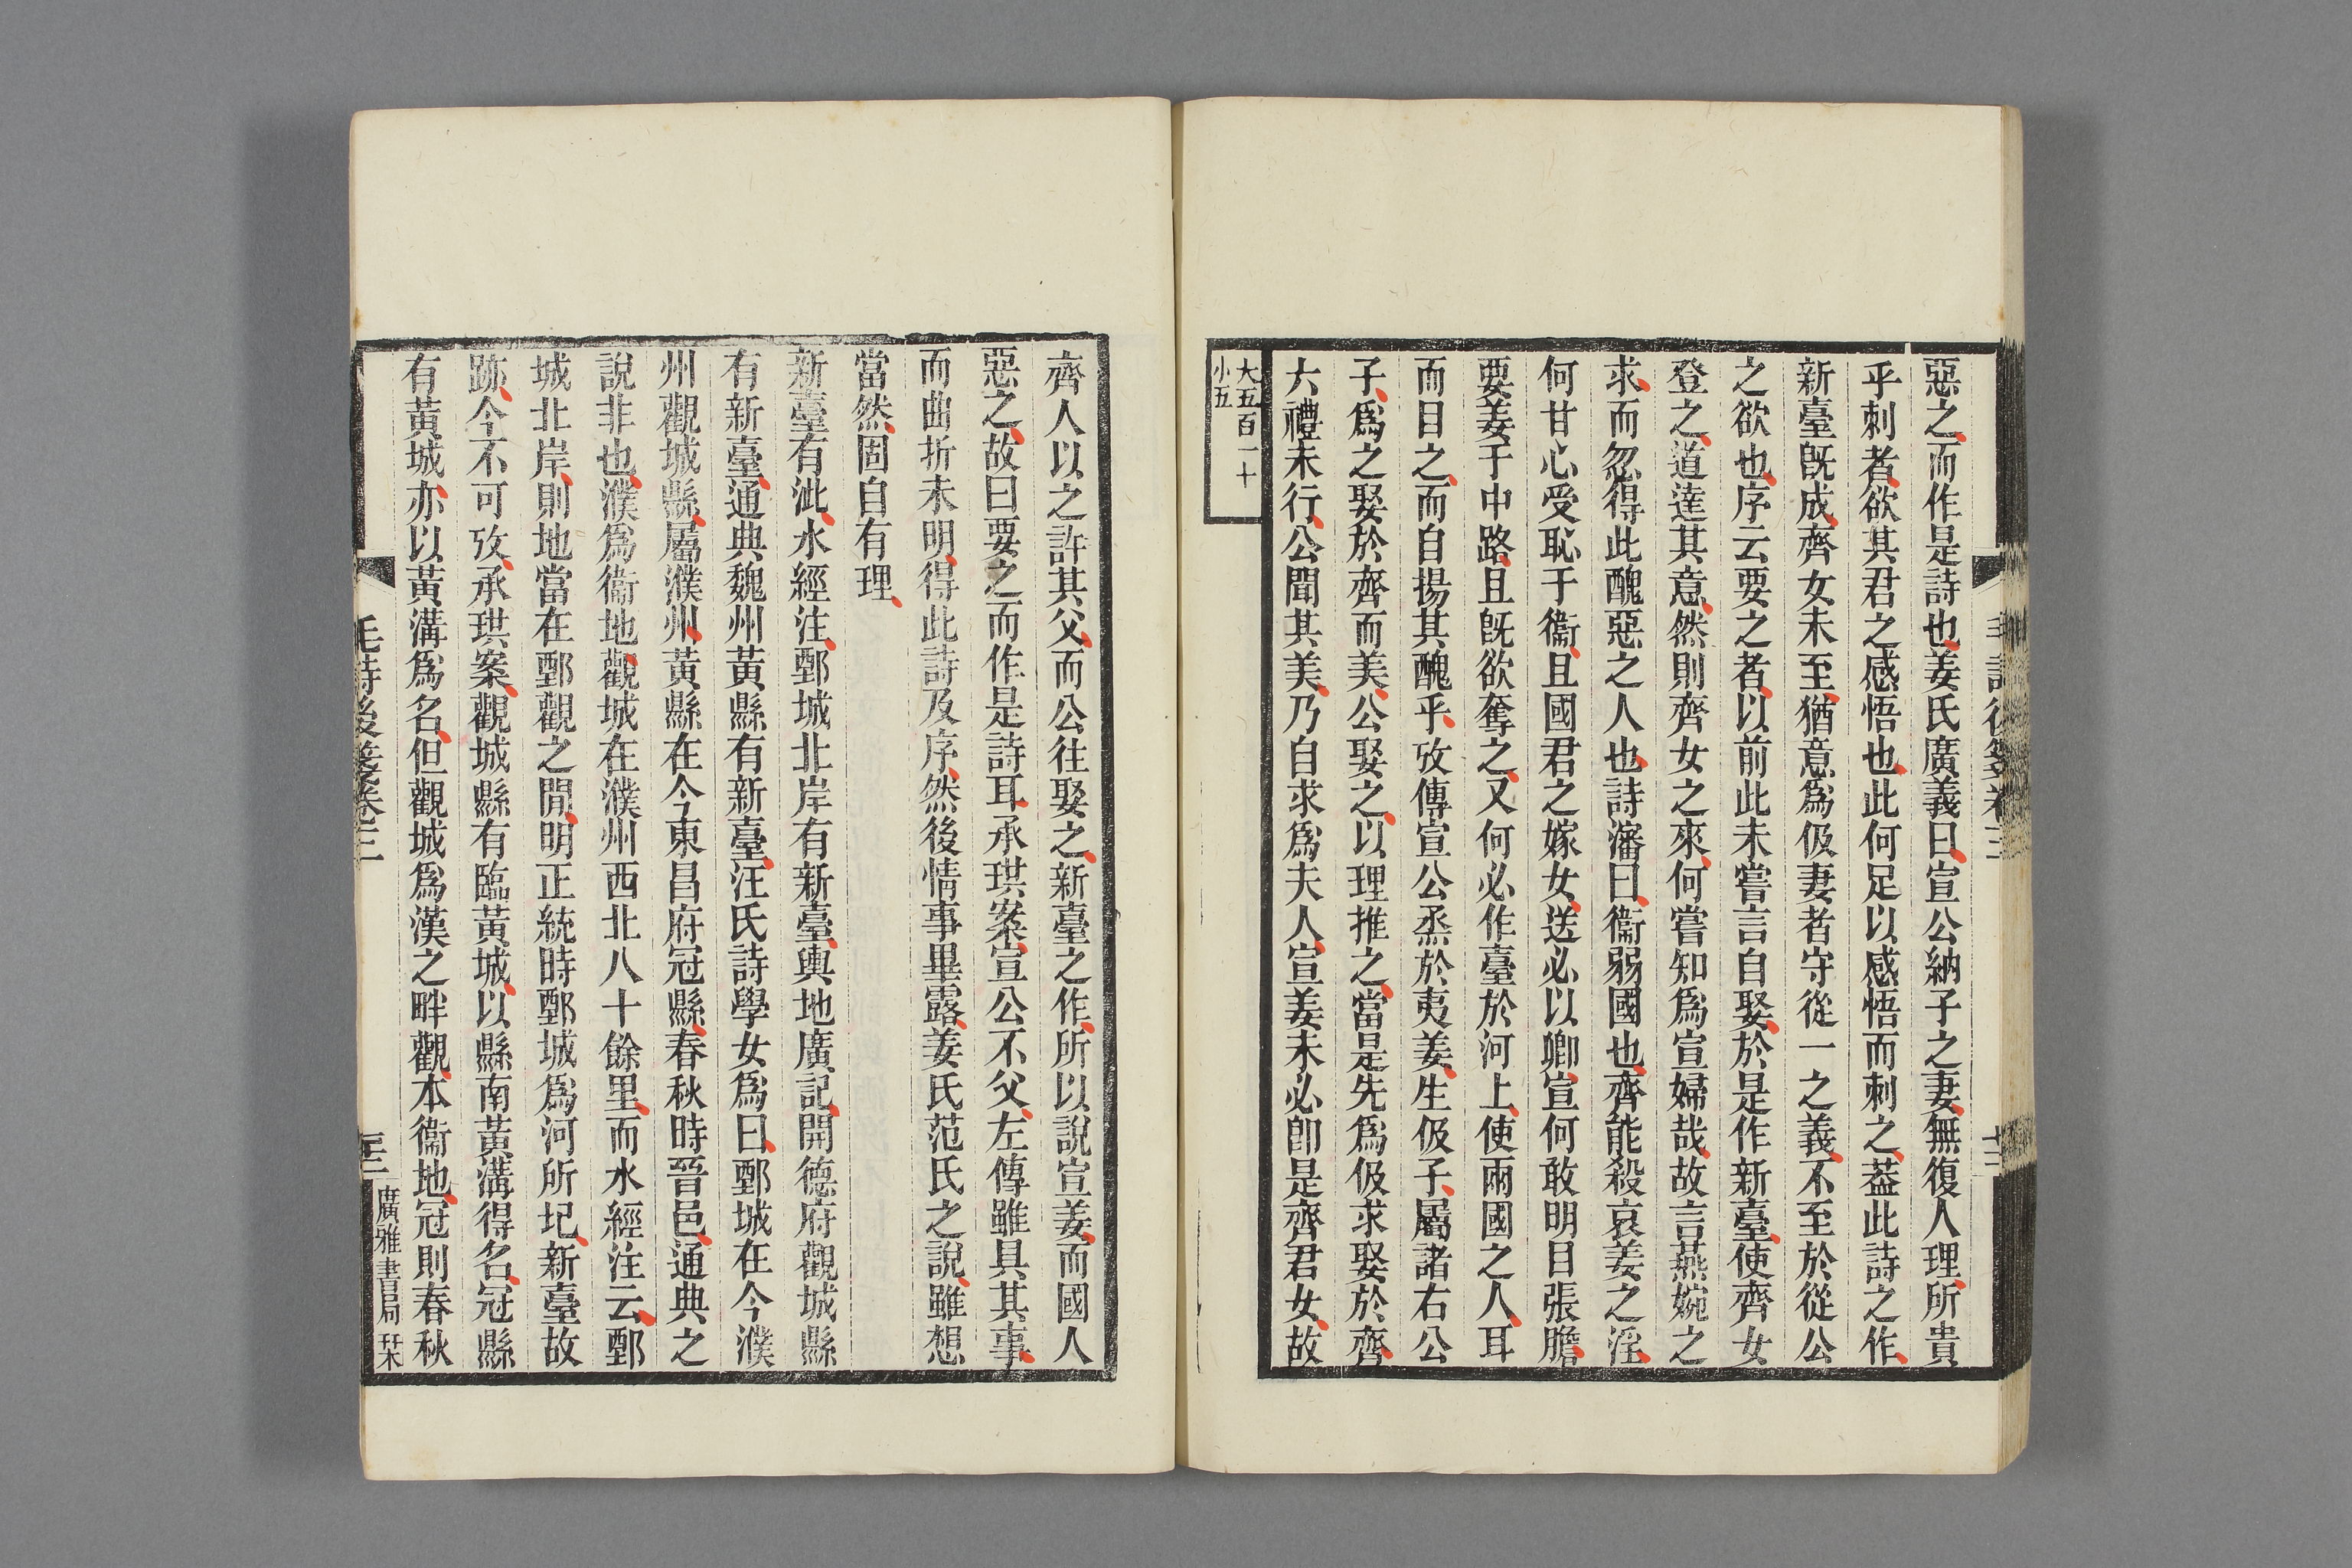 惡之而作是詩也姜氏廣義曰宣公納子之妻無復人理所貴
乎刺者欲其君之感悟也此何足以感悟而刺之葢此詩之作
新臺旣成齊女未至猶意爲伋妻者守從一之義不至於從公
之欲也序云要之者以前此未嘗言自娶於是作新臺使齊女
登之道達其意然則齊女之來何嘗知爲宣婦哉故言燕婉之
求而忽得此醜惡之人也詩瀋曰衞弱國也齊能殺哀姜之淫
何甘心受恥于衞且國君之嫁女送必以卿宣何敢明目張膽
要姜于中路且旣欲奪之又何必作臺於河上使兩國之人耳
而目之而自揚其醜乎攷傳宣公烝於夷姜生伋子屬諸右公
子爲之娶於齊而美公娶之以理推之當是先爲伋求娶於齊
六禮未行公聞其美乃自求爲夫人宣姜未必卽是齊君女故
大五百一十
小五
齊人以之許其父而公往娶之新臺之作所以說宣姜而國人
惡之故曰要之而作是詩耳承珙案宣公不父左傳雖具其事
而曲折未明得此詩及序然後情事畢露姜氏范氏之說雖想
當然固自有理
新臺有泚水經注鄄城北岸有新臺輿地廣記開德府觀城縣
有新臺通典魏州黃縣有新臺汪氏詩學女爲曰鄄城在今濮
州觀城縣屬濮州黃縣在今東昌府冠縣春秋時晉邑通典之
說非也濮爲衞地觀城在濮州西北八十餘里而水經注云鄄
城北岸則地當在鄄觀之閒明正統時鄄城爲河所圮新臺故
跡今不可攷承珙案觀城縣有臨黃城以縣南黃溝得名冠縣
有黃城亦以黃溝爲名但觀城爲漢之畔觀本衞地冠則春秋
毛詩後箋卷三
廣雅書局栞